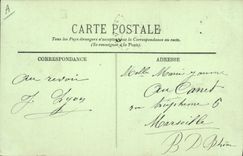 A
CARTE POSTALE
Tous les Pays étrangers n'acceptent pas la Correspondance au recto.
(Se renseigner à la Poste)
CORRESPONDANCE
ADRESSE
au revoir
Lyon
Melle Marie
au Canet
6
Marseille
B D Rhône